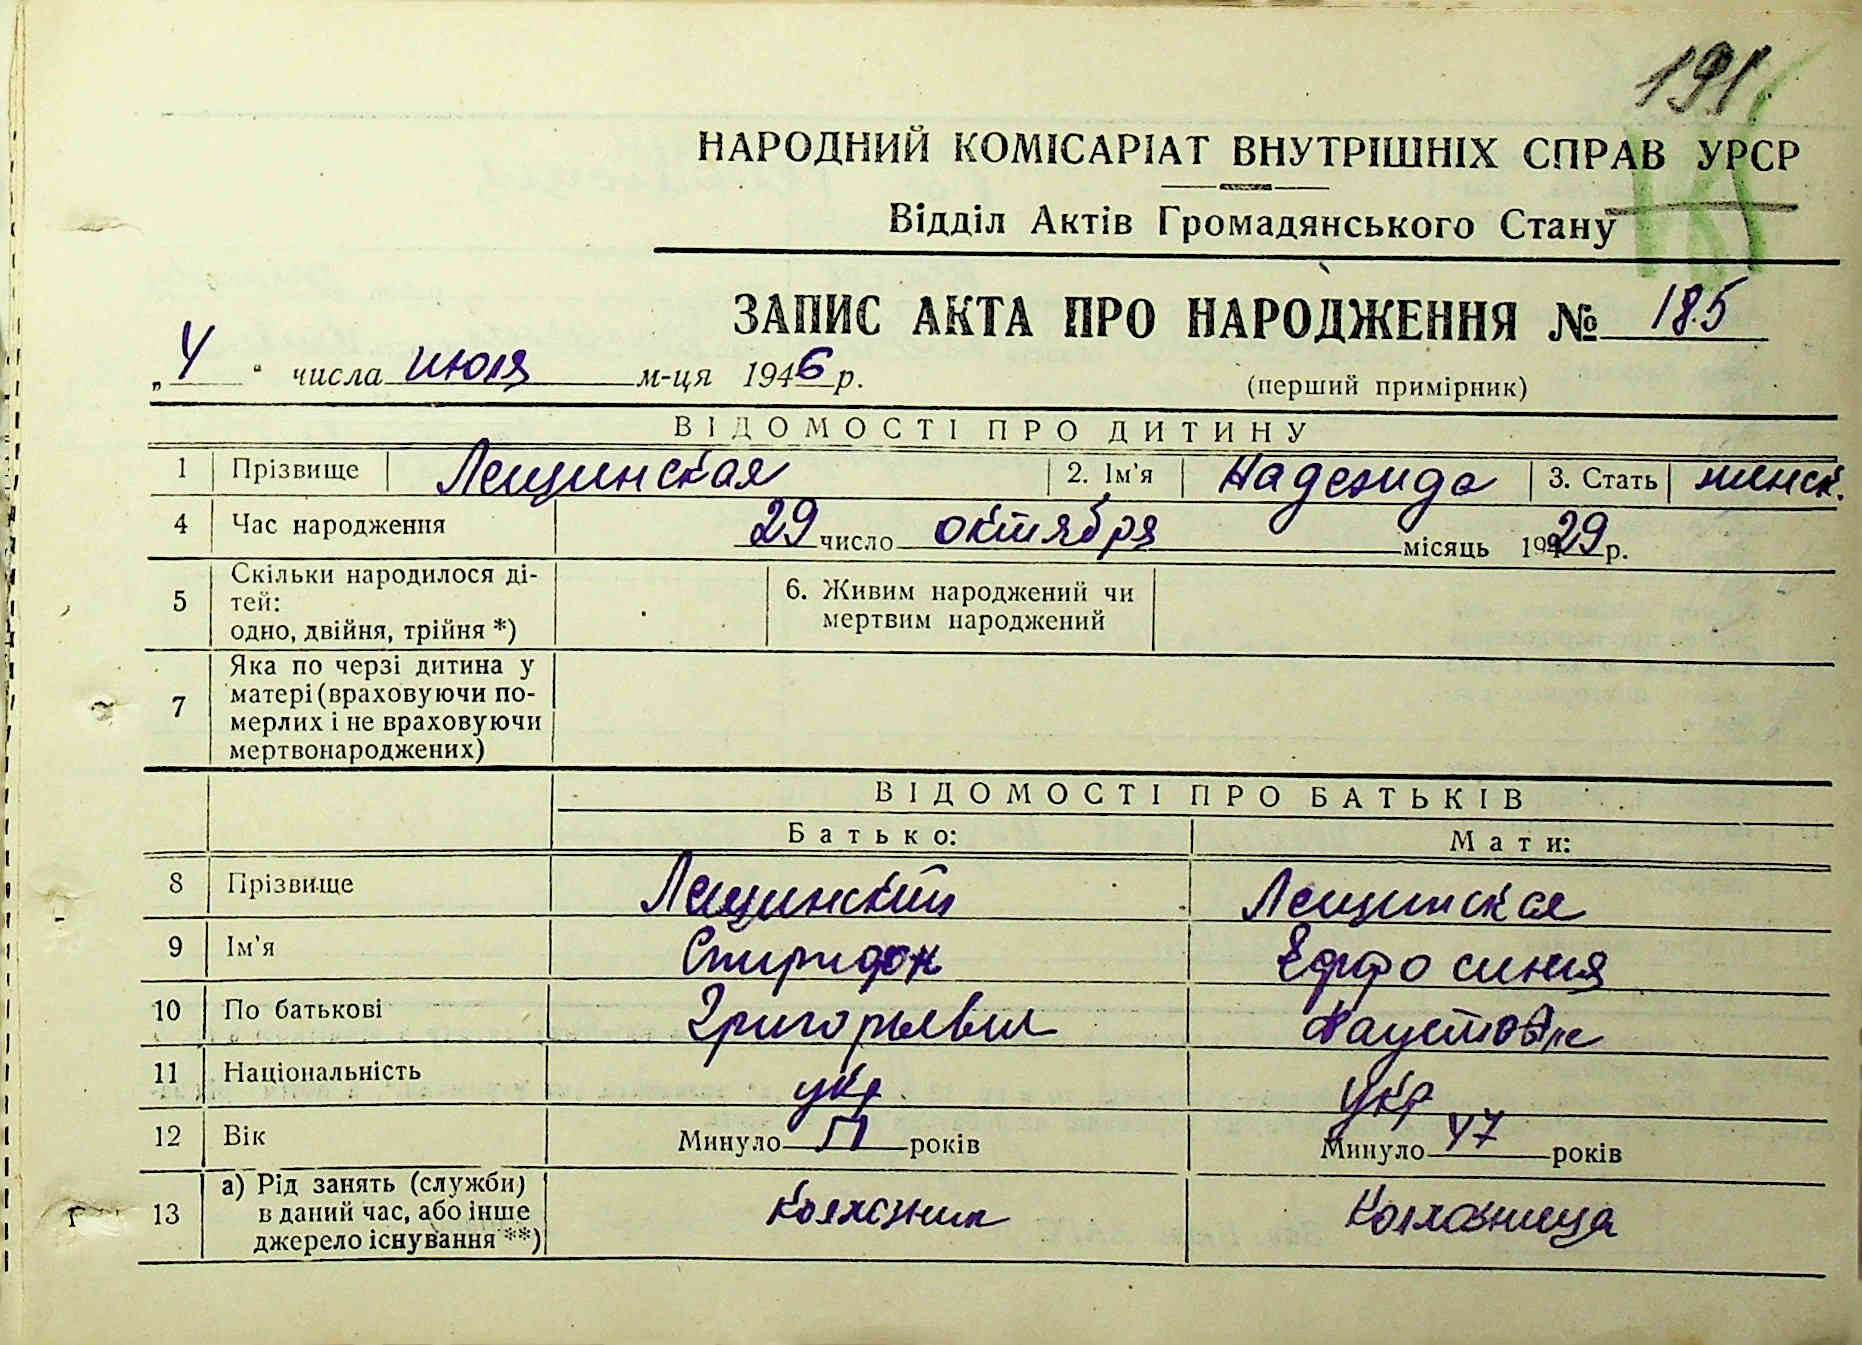 191
НАРОДНИЙ КОМІСАРІАТ ВНУТРІШНІХ СПРАВ УРСР
Відділ Актів Громадянського Стану
ЗАПИС АКТА ПРО НАРОДЖЕННЯ № 185
„4“ числа июля м-ця 1946 р. (перший примірник)
ВІДОМОСТІ ПРО ДИТИНУ
1 Прізвище Лещинская 2. Ім'я Надежда 3. Стать женск.
4 Час народження 29 число октября місяць 1929 р.
5 Скільки народилося ді-
тей:
одно, двійня, трійня *)
6. Живим народжений чи
мертвим народжений
7 Яка по черзі дитина у
матері (враховуючи по-
мерлих і не враховуючи
мертвонароджених)
ВІДОМОСТІ ПРО БАТЬКІВ
Батько: Мати:
8 Прізвище Лещинский Лещинская
9 Ім'я Спиридон Ефросиния
10 По батькові Григорьевич Фаустовн
11 Національність укр укр
12 Вік Минуло 51 років Минуло 47 років
13 а) Рід занять (служби)
в даний час, або інше
джерело існування **)
Колхозник Колхозница